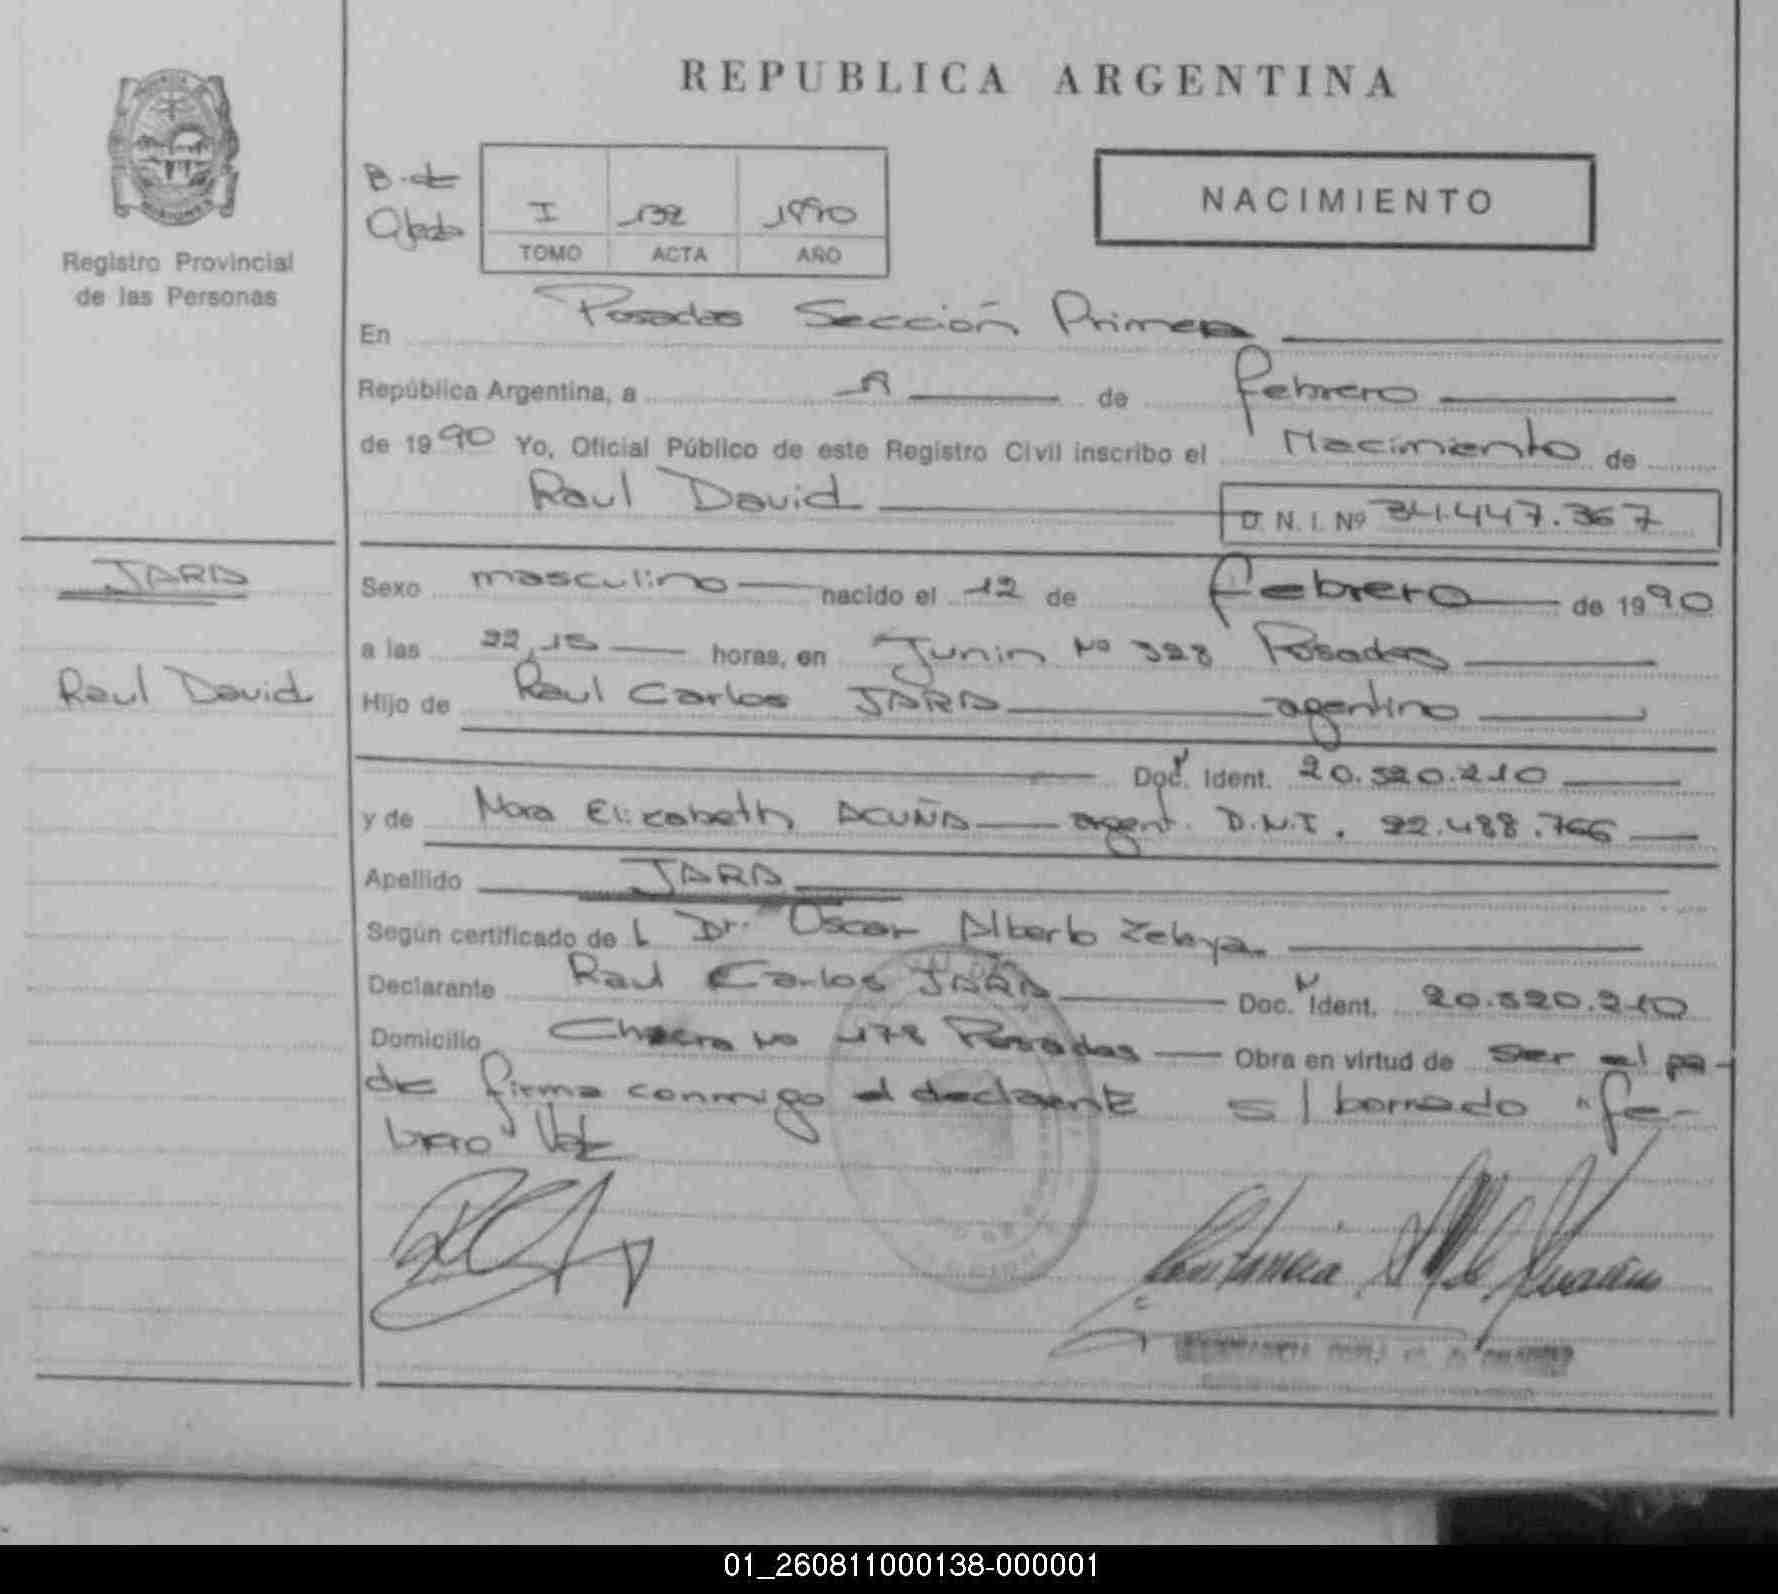 REPUBLICA ARGENTINA
Registro Provincial
de las Personas
B. de
I 132 1990
TOMO ACTA AÑO
NACIMIENTO
En Posadas Sección Primera
República Argentina, a de febrero
de 1990 Yo, Oficial Público de este Registro Civil inscribo el Nacimiento de
Raul David
D. N. I. Nº 34.447.367
JARA
Raul David
Sexo masculino nacido el 12 de febrero de 1990
a las 22,15 horas, en Junin Nº 328 Posadas
Hijo de Raul Carlos JARA agentino
Doc. Ident. 20.520.210
y de Elizabeth ACUÑA argent. D.N.I. 22.488.766
Apellido JARA
Según certificado de l Dr. Oscar Alberto Zelaya
Declarante Raul Carlos JARA Doc. Ident. 20.520.210
Domicilio Chacra Nº 178 Posadas Obra en virtud de ser el pa-
dre firma conmigo el declarante s/borrado "fe-
brero" Vale
01_260811000138-000001